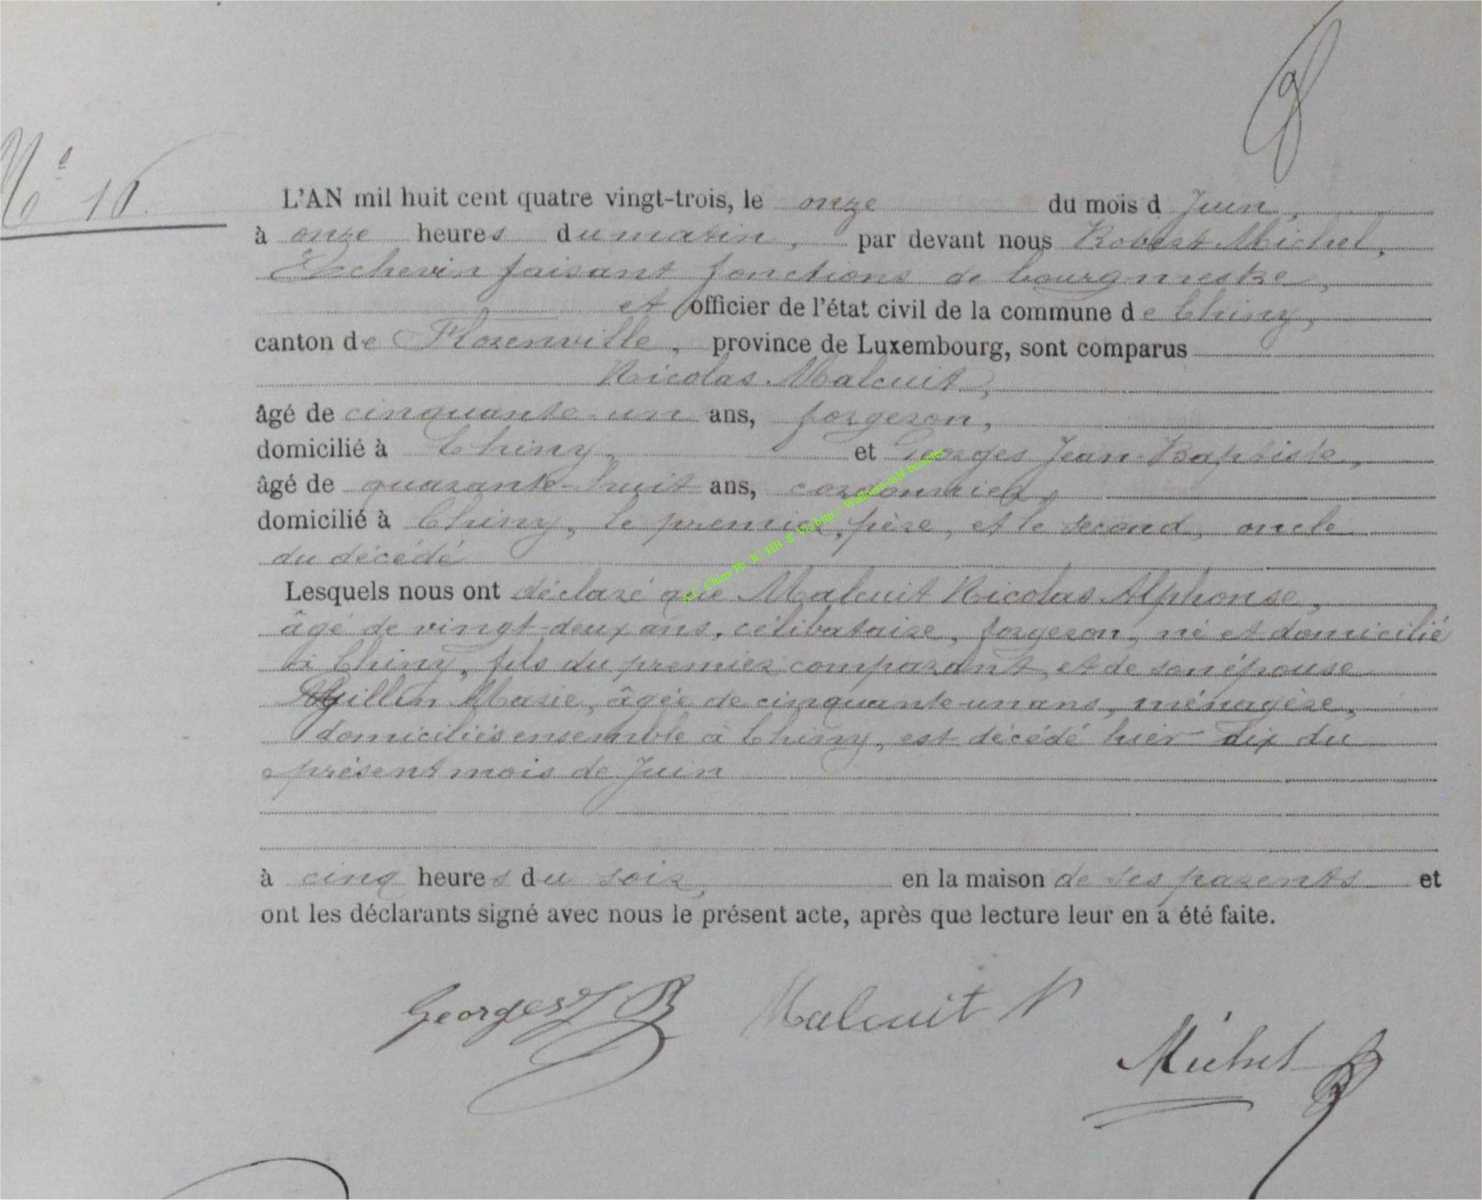 N° 16
L'AN mil huit cent quatre vingt-trois, le onze du mois d Juin,
à onze heures du matin, par devant nous Robert Michel,
Echevin faisant fonctions de bourgmestre,
et officier de l'état civil de la commune de Chiny,
canton de Florenville, province de Luxembourg, sont comparus
Nicolas Malcuit,
âgé de cinquante-un ans, forgeron,
domicilié à Chiny, et Georges Jean-Baptiste,
âgé de quarante-huit ans, cordonnier,
domicilié à Chiny, le premier, père, et le second, oncle
du décédé
Lesquels nous ont déclaré que Malcuit Nicolas Alphonse,
âgé de vingt-deux ans, célibataire, forgeron, né et domicilié
à Chiny, fils du premier comparant et de son épouse
Marie, âgée de cinquante-un ans, ménagère,
domiciliés ensemble à Chiny, est décédé hier dix du
présent mois de Juin
à cinq heures du soir, en la maison de ses parents et
ont les déclarants signé avec nous le présent acte, après que lecture leur en a été faite.
Georges J B Malcuit N
Michel